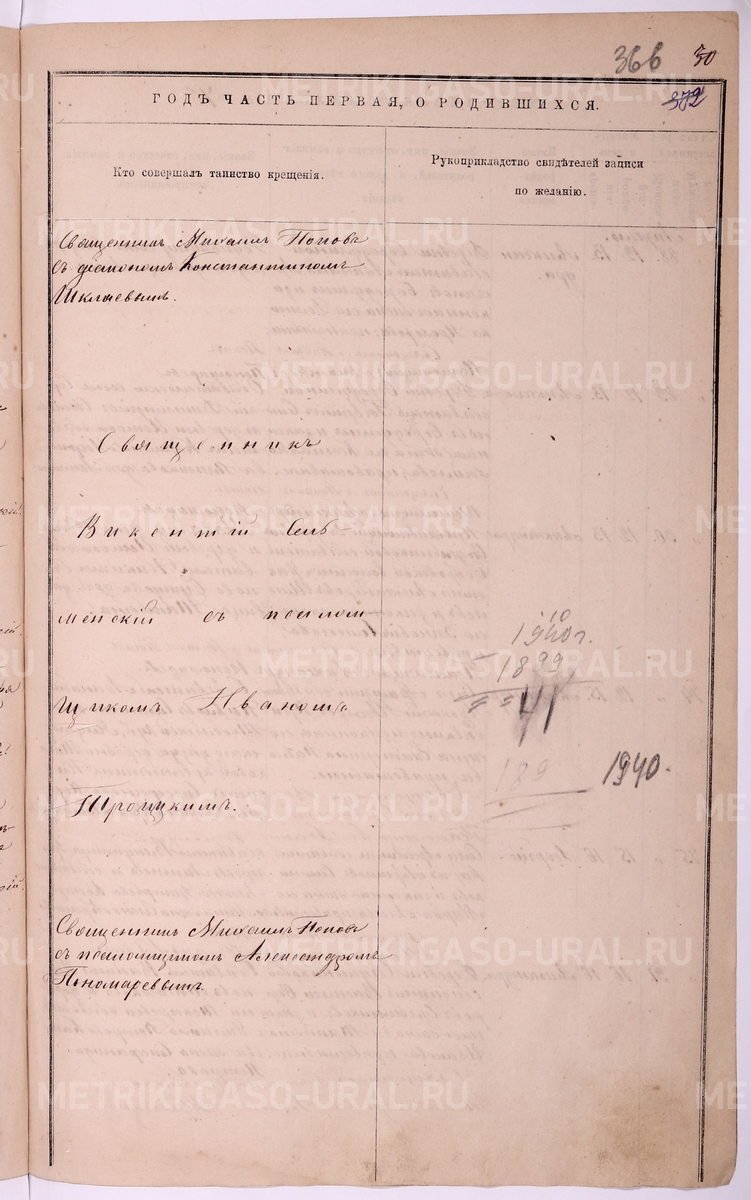 36б 30
372
ГОДЪ ЧАСТЬ ПЕРВАЯ, О РОДИВШИХСЯ.
Кто совершалъ таинство крещенія.
Рукоприкладство свидѣтелей записи
по желанію.
Священникъ Михаилъ Поповъ
съ діакономъ Константиномъ
Шкляевымъ.
Священникъ
Викентій Сель-
менскій съ псалом-
щикомъ Иваномъ
Троицкимъ.
10
1940г.
1899
41
189
1940.
Священникъ Михаилъ Поповъ
съ псаломщикомъ Александромъ
Пономаревымъ.
METRIKI.GASO-URAL.RU